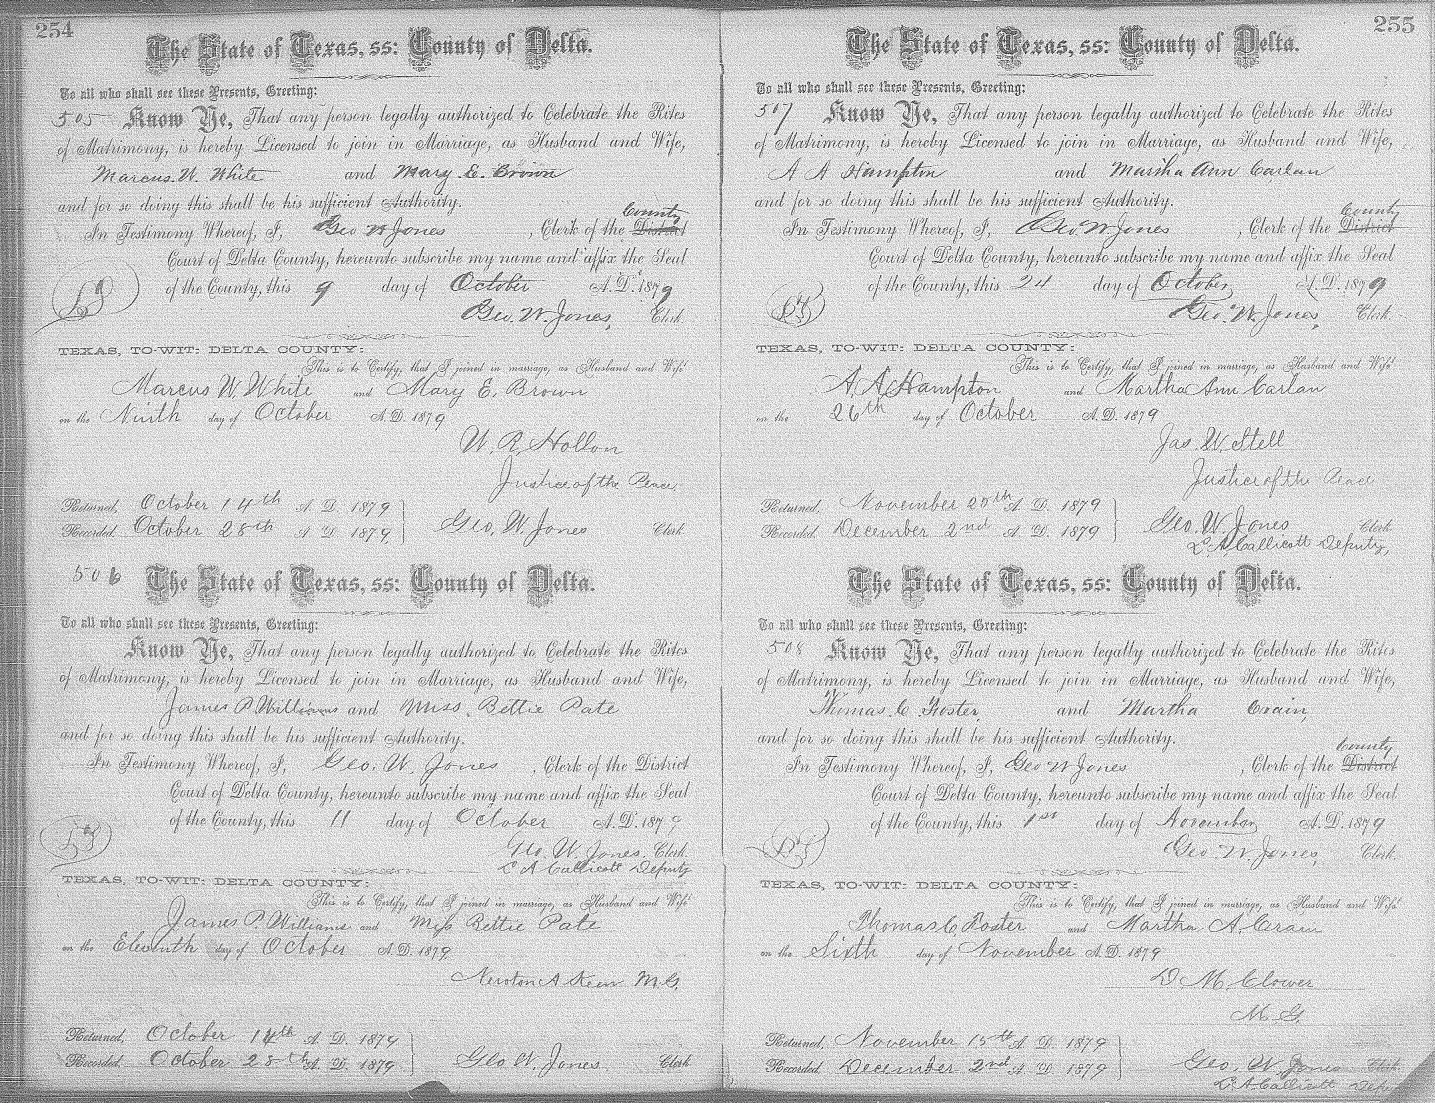 254
The State of Texas, ss: County of Delta.
To all who shall see these Presents, Greeting:
505 Know Ye, That any person legally authorized to Celebrate the Rites
of Matrimony, is hereby Licensed to join in Marriage, as Husband and Wife,
Marcus. W. White and Mary. E. Brown
and for so doing this shall be his sufficient Authority.
County
In Testimony Whereof, I, Geo W Jones, Clerk of the District
Court of Delta County, hereunto subscribe my name and affix the Seal
of the County, this 9 day of October A.D. 1879
Geo. W. Jones, Clerk.
TEXAS, TO-WIT: DELTA COUNTY:
This is to Certify, that I joined in marriage, as Husband and Wife
Marcus W. White and Mary E. Brown
on the Ninth day of October A.D. 1879
W. R. Hollon
Justice of the Peace
Returned, October 14th A. D. 1879
Recorded, October 28th A. D. 1879, Geo. W. Jones Clerk
506 The State of Texas, ss: County of Delta.
To all who shall see these Presents, Greeting:
Know Ye, That any person legally authorized to Celebrate the Rites
of Matrimony, is hereby Licensed to join in Marriage, as Husband and Wife,
James P. Williams and Miss. Bettie Pate
and for so doing this shall be his sufficient Authority.
In Testimony Whereof, I, Geo. W. Jones, Clerk of the District
Court of Delta County, hereunto subscribe my name and affix the Seal
of the County, this 11 day of October A.D. 1879
Geo. W. Jones, Clerk.
L A Callicott Deputy
TEXAS, TO-WIT: DELTA COUNTY:
This is to Certify, that I joined in marriage, as Husband and Wife
James P. Williams and Miss Bettie Pate
on the Eleventh day of October A.D. 1879
M.G.
Returned, October 14th A. D. 1879
Recorded, October 28th A. D. 1879 Geo W. Jones. Clerk
255
The State of Texas, ss: County of Delta.
To all who shall see these Presents, Greeting:
507 Know Ye, That any person legally authorized to Celebrate the Rites
of Matrimony, is hereby Licensed to join in Marriage, as Husband and Wife,
A A Hampton and Martha Ann Carlan
and for so doing this shall be his sufficient Authority.
County
In Testimony Whereof, I, Geo. W Jones, Clerk of the District
Court of Delta County, hereunto subscribe my name and affix the Seal
of the County, this 24 day of October A.D. 1879
Geo. W. Jones, Clerk.
TEXAS, TO-WIT: DELTA COUNTY:
This is to Certify, that I joined in marriage, as Husband and Wife
A. A Hampton and Martha Ann Carlan
on the 26th day of October A.D. 1879
Jas. W. Stell
Justice of the Peace
Returned, November A. D. 1879
Recorded, December 2nd A. D. 1879 Geo. W. Jones Clerk
L A Callicott Deputy,
The State of Texas, ss: County of Delta.
To all who shall see these Presents, Greeting:
508 Know Ye, That any person legally authorized to Celebrate the Rites
of Matrimony, is hereby Licensed to join in Marriage, as Husband and Wife,
Thomas. C. Foster, and Martha Crain,
and for so doing this shall be his sufficient Authority.
County
In Testimony Whereof, I, Geo W Jones, Clerk of the District
Court of Delta County, hereunto subscribe my name and affix the Seal
of the County, this 1st day of November A.D. 1879
Geo W. Jones, Clerk.
TEXAS, TO-WIT: DELTA COUNTY:
This is to Certify, that I joined in marriage, as Husband and Wife
Thomas C Foster and Martha A. Crain
on the Sixth day of November A.D. 1879
D M Clower
M. G.
Returned, November 15th A. D. 1879
Recorded, December 2nd A. D. 1879 Geo. W. Jones Clerk.
L A Callicott